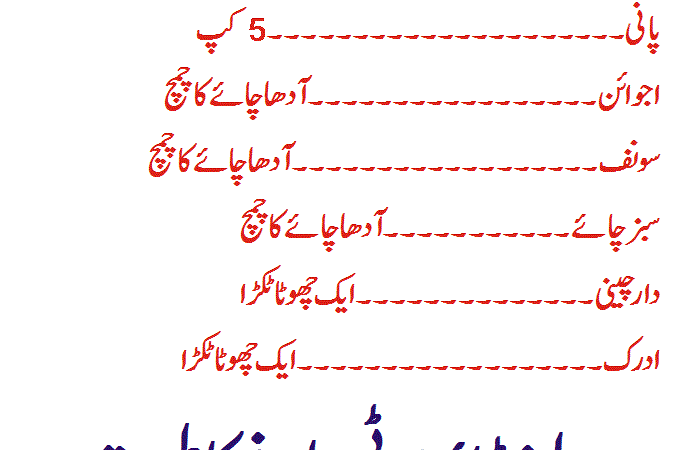 پانی-----------------------5 کپ
اجوائن-------------------آدھا چائے کا چمچ
سونف--------------------آدھا چائے کا چمچ
سبز چائے------------آدھا چائے کا چمچ
دارچینی----------------ایک چھوٹا ٹکڑا
ادرک--------------------ایک چھوٹا ٹکڑا